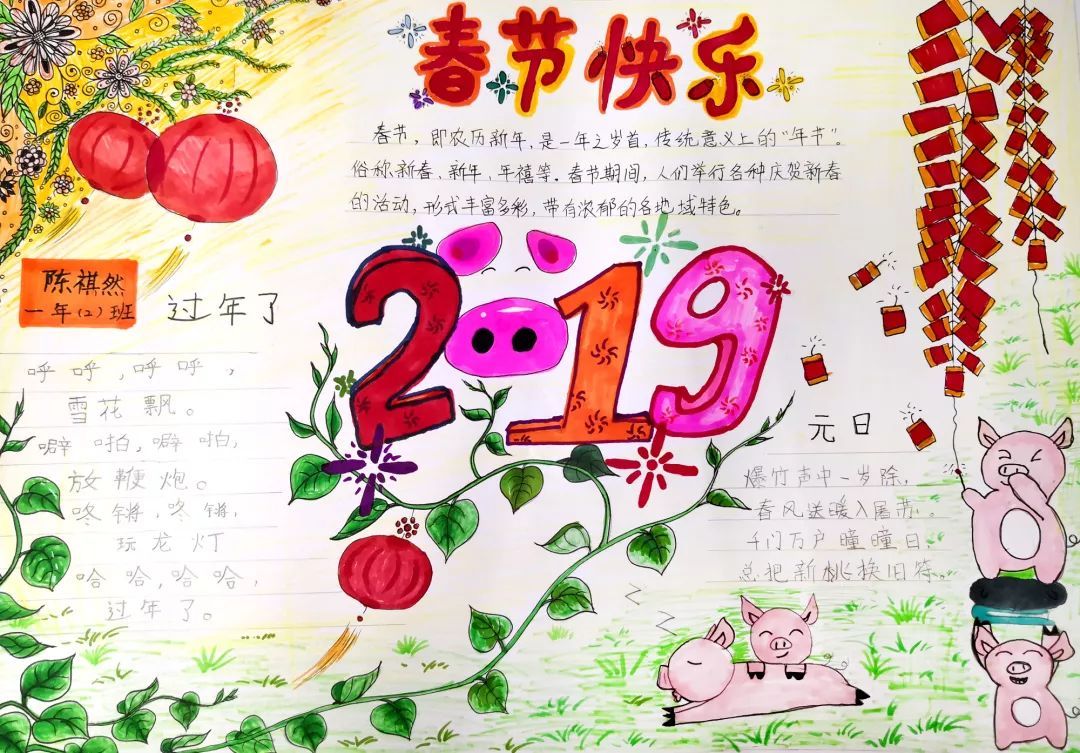 春节快乐
春节，即农历新年，是一年之岁首，传统意义上的“年节”。
俗称新春、新年、年禧等。春节期间，人们举行各种庆贺新春
的活动，形式丰富多彩，带有浓郁的各地域特色。
2019
陈祺然
一年(2)班
过年了
呼呼，呼呼，
雪花飘。
噼啪，噼啪，
放鞭炮。
咚锵，咚锵，
玩龙灯
哈哈，哈哈，
过年了。
元日
爆竹声中一岁除，
春风送暖入屠苏。
千门万户瞳瞳日，
总把新桃换旧符。
z
z